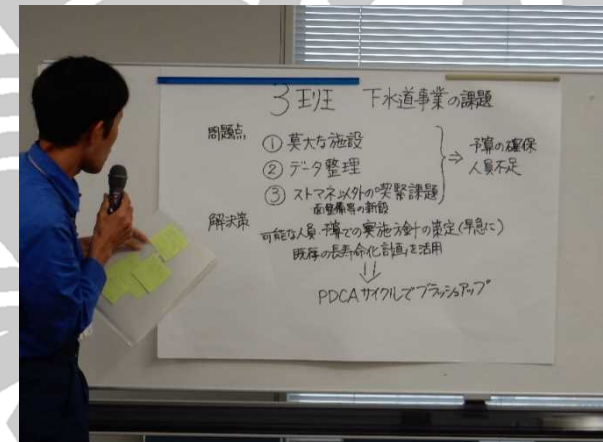 3班 下水道事業の課題
問題点
① 莫大な施設
② データ整理
③ ストマネ以外の喫緊課題
面整備等の新設
⇒ 予算の確保
人員不足
解決策
可能な人員・予算での実施方針の策定(早急に)
既存の長寿命化計画を活用
PDCAサイクルでブラッシュアップ